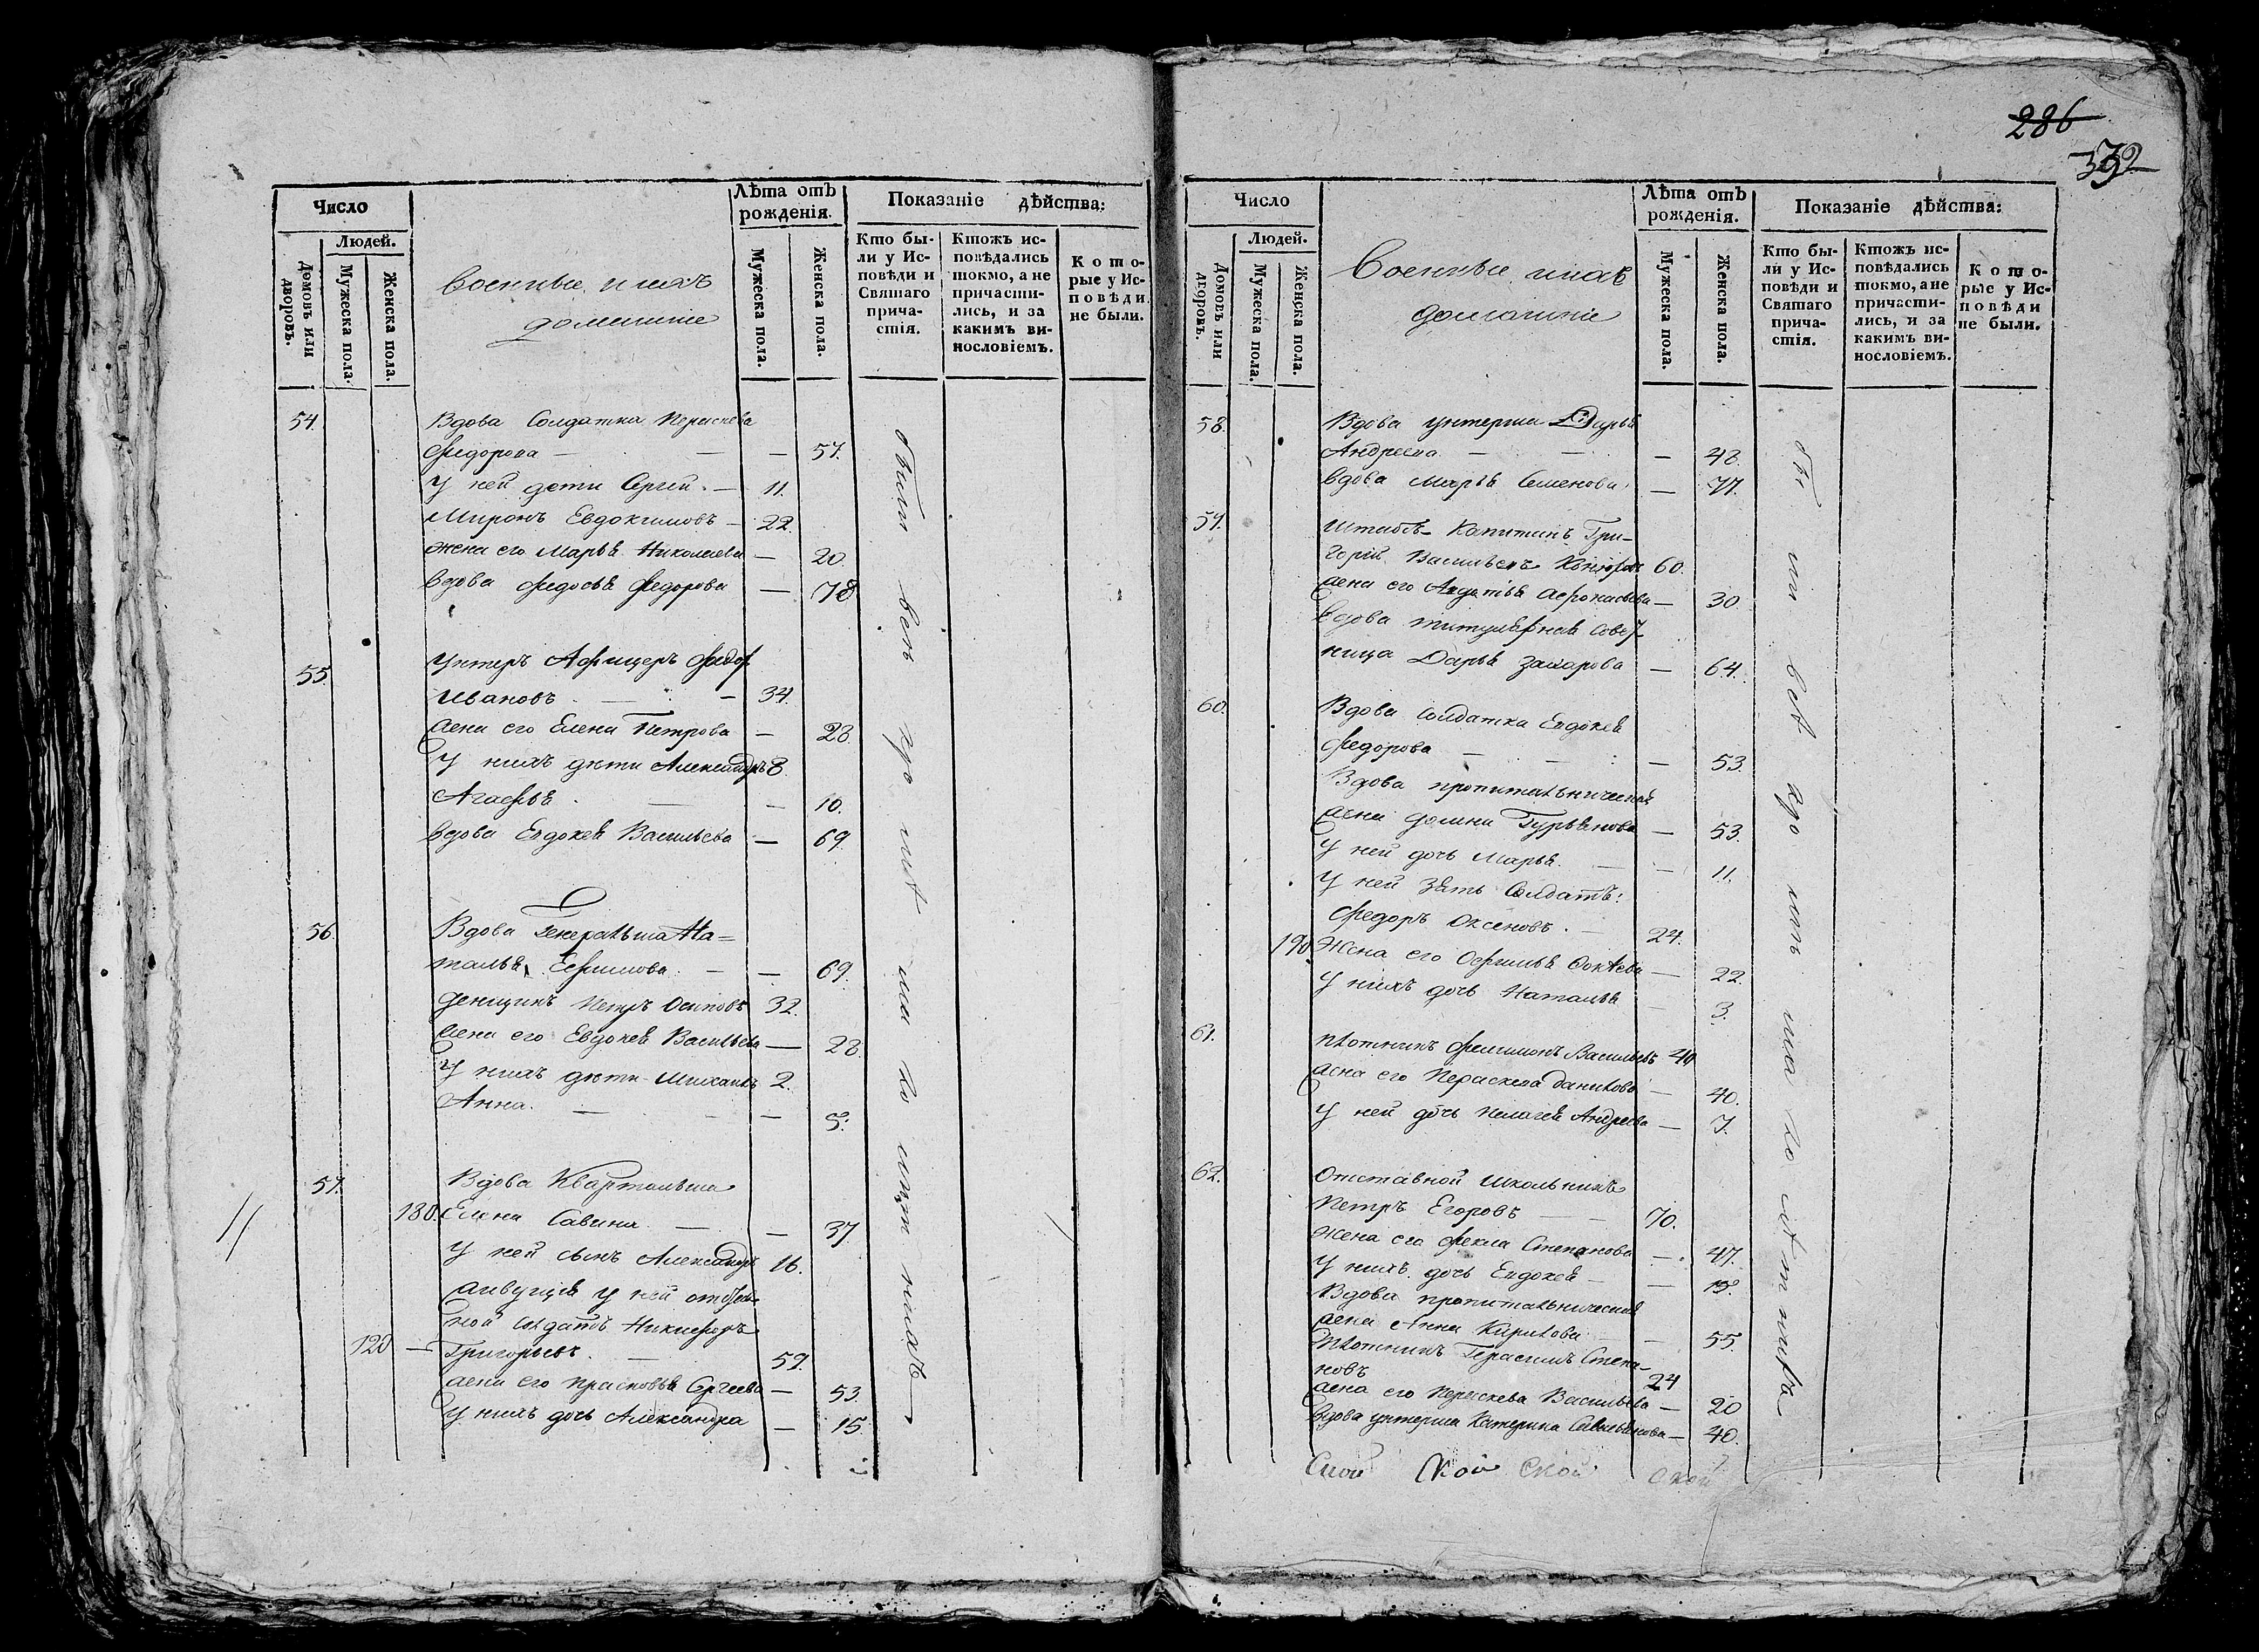 286
392
Число
Людей.
Домовъ или дворовъ.
Мужеска пола.
Женска пола.
Военные и ихъ
домашніе
Лѣта отъ
рожденія.
Мужеска пола.
Женска пола.
Показаніе дѣйства:
Кто бы-
ли у Ис-
повѣди и
Святаго
прича-
стія.
Ктожъ ис-
повѣдались
токмо, а не
причасти-
лись, и за
какимъ ви-
нословіемъ.
Кото-
рые у Ис-
повѣди
не были.
54. Вдова Солдатка
Федорова — — — 57.
У ней дети Сергій. — 11.
Миронъ Евдокимовъ — 22.
жена его Марья Николаева — 20.
Вдова Федосья Федорова — 78
55. Унтеръ Афицеръ
Ивановъ — — 34.
жена его Елена Петрова — 28.
У нихъ дети Александръ 8.
Агафья — — 10.
Вдова Евдокея Васильева — 69.
56. Вдова Генеральша На=
талья Ефимова — — 69.
денщикъ Петръ Осиповъ 32.
жена его Евдокея Васильева — 28
У нихъ дети Михаилъ 2.
Анна. — — 5.
57. Вдова Квартальша
180. Елена Савина — — 37
У ней сынъ Александръ 16.
живущія у ней отстав-
ной солдатъ Никифоръ
120 — Григорьевъ. — 59.
жена его Прасковья Сергеева — 53.
У нихъ дочь Александра — 15.
Число
Людей.
Домовъ или дворовъ.
Мужеска пола.
Женска пола.
Военные и ихъ
домашніе
Лѣта отъ
рожденія.
Мужеска пола.
Женска пола.
Показаніе дѣйства:
Кто бы-
ли у Ис-
повѣди и
Святаго
прича-
стія.
Ктожъ ис-
повѣдались
токмо, а не
причасти-
лись, и за
какимъ ви-
нословіемъ.
Кото-
рые у Ис-
повѣди
не были.
58. Вдова унтерша Дарья
Андреева — — — 48.
Вдова Марья Семенова — 77.
59. Штабсъ Капитанъ Гри-
горій Васильевъ 60.
жена его Авдотья Афонасьева — 30
Вдова титулярная совет-
ница Дарья Захарова — 64.
60. Вдова солдатка Евдокея
Федорова — — 53.
Вдова
жена Гурьянова — 53.
У ней дочь Марья. — 11.
У ней зять Солдатъ:
Федоръ Оксеновъ. — 24.
190. Жена его Офимья — 22.
У нихъ дочь Наталья — 3.
61. плотникъ Филимонъ Васильевъ 40
жена его Данилова — 40.
У ней дочь Пелагея Андреева — 7.
62. Отставной школьникъ
Петръ Егоровъ — — 70.
Жена его Фекла Степанова — 47.
У нихъ дочь Евдокея —
Вдова
жена Анна Кирилова — 55.
Плотникъ Герасимъ Степа-
новъ 24
жена его Васильева — 20
Вдова унтерша Катерина — 40.
Скои Скои Скои Скои